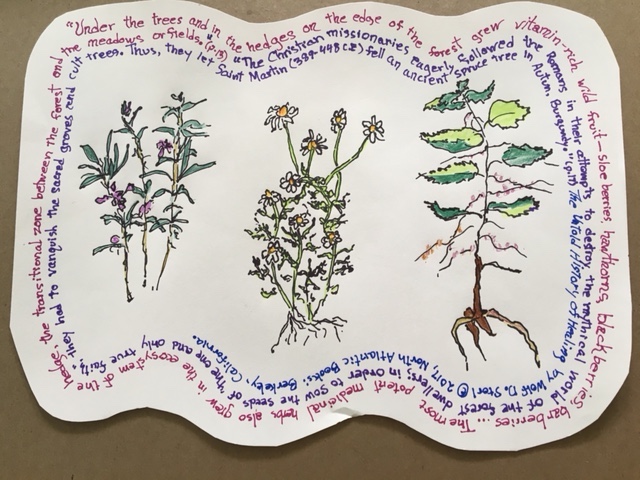 "Under the trees and in the hedges on the edge of the forest grew vitamin-rich wild fruit—sloe berries, hawthorns, blackberries, barberries... The most potent medicinal herbs also grew in the ecosystem of the hedge, the transitional zone between the forest and the meadows or fields." (p.13)
"The Christian missionaries eagerly followed the Romans in their attempts to destroy the mythical world of the forest dwellers; in order to sow the seeds of the one and only true faith, they had to vanquish the sacred groves and cult trees. Thus, they let Saint Martin (389-448 CE) fell an ancient spruce tree in Autun, Burgundy." (p.17) The Untold History of Healing by Wolf D. Storl © 2017, North Atlantic Books: Berkeley, California.